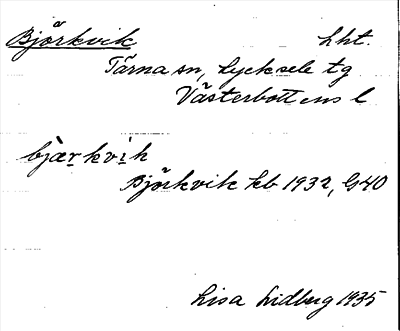 Björkvik lht.
Tärna sn, Lycksele tg
Västerbottens l
bjær̤kvik
Björkvik kb 1932, G40
Lisa Lidberg 1935